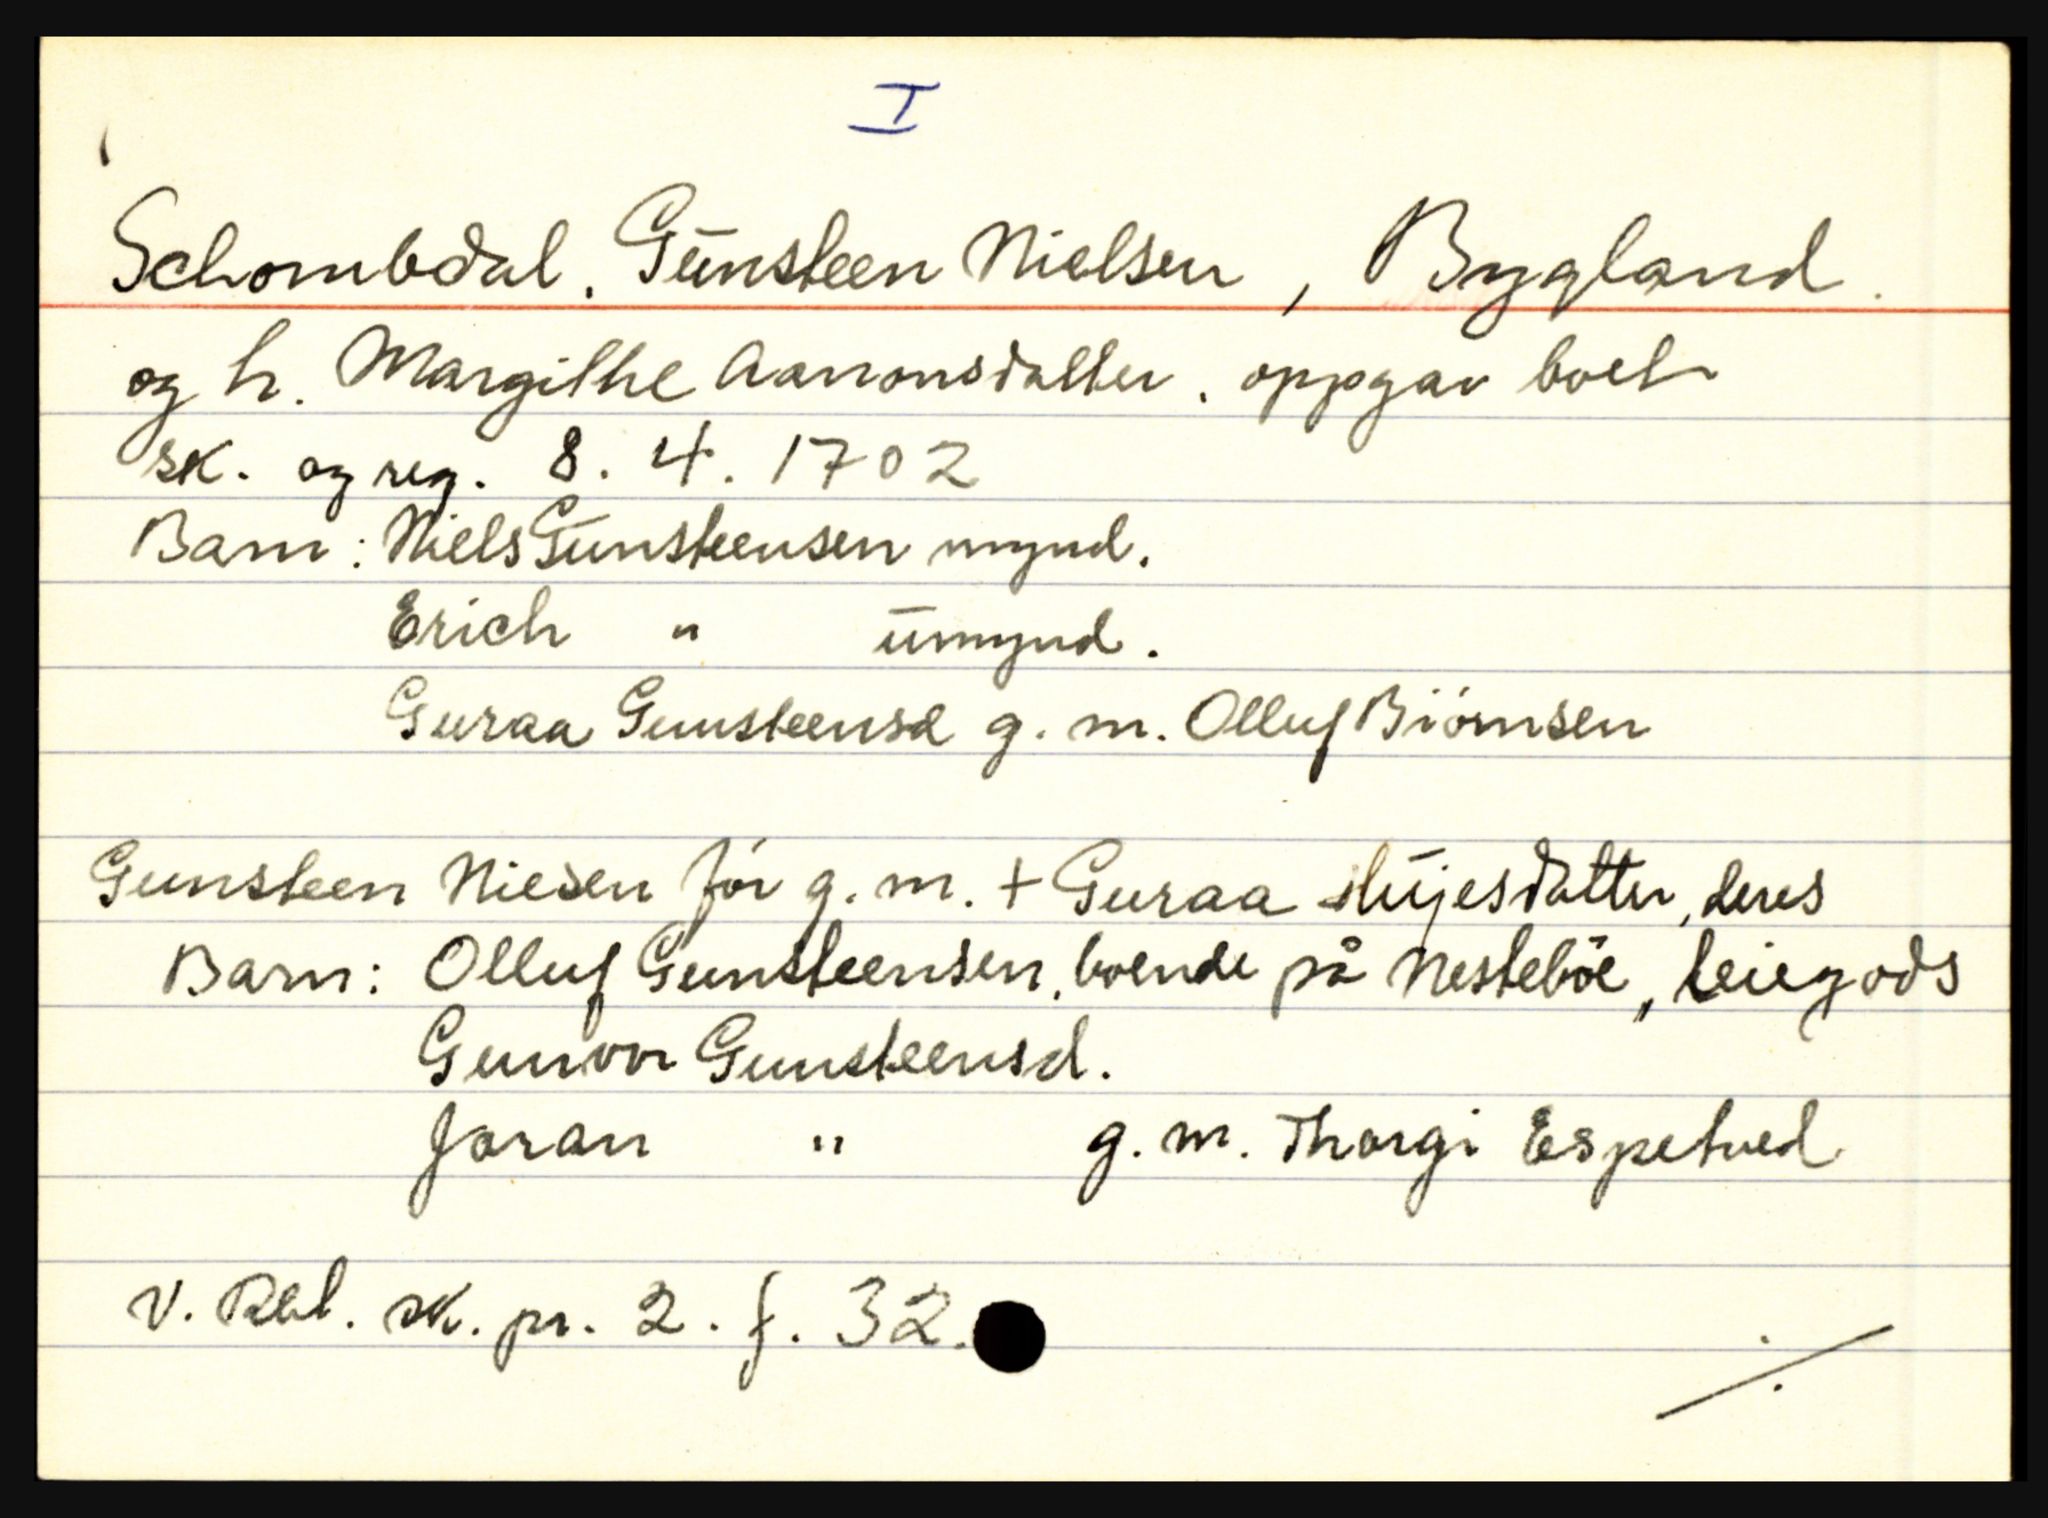 I
Schombdal. Gunsteen Nielsen, Bygland.
og h. Margithe Aanonsdatter. oppgav boet
sk. og reg. 8. 4. 1702
Barn: Niels Gunsteensen mynd.
Erich " umynd.
Guraa Gunsteensd g. m. Olluf Biörnsen
Gunsteen Niesen för g. m. + Guraa deres
Barn: Olluf Gunsteensen, boende på Nesteböe, leiegods
Gunvor Gunsteensd.
Joran " g. m. Thorgi Espetved
V. Rbl. sk. pr. 2. f. 32.
./.